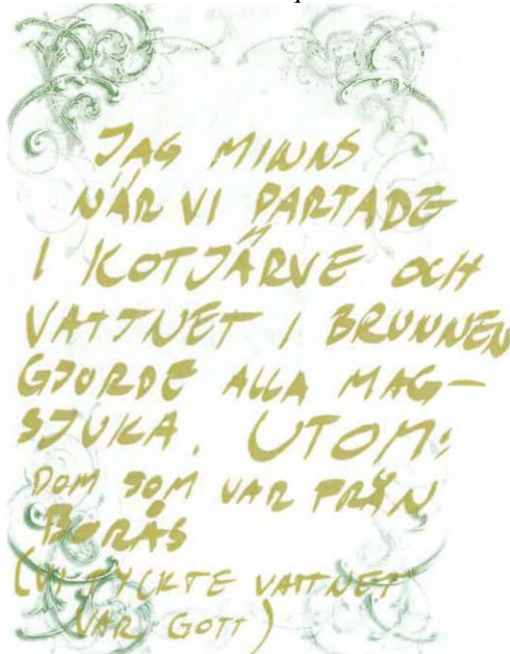 JAG MINNS
NÄR VI PARTADE
I KOTJÄRVE OCH
VATTNET I BRUNNEN
GJORDE ALLA MAG-
SJUKA. UTOM:
DOM SOM VAR FRÅN
BORÅS
(VI TYCKTE VATTNET
VAR GOTT)